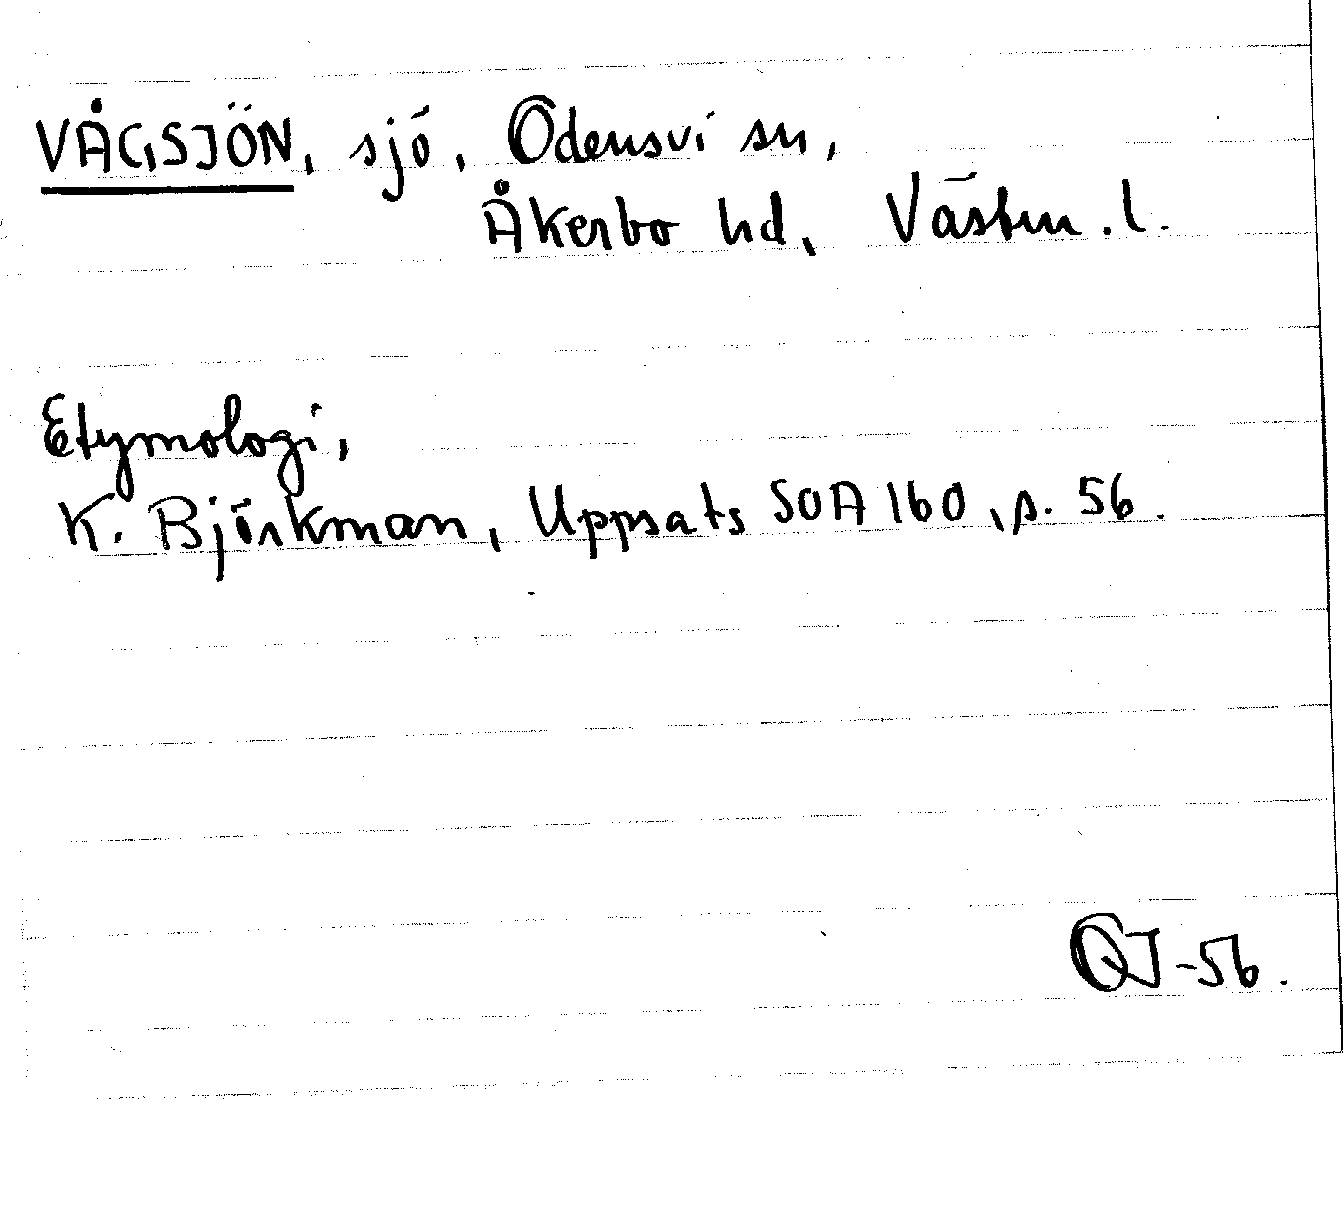 VÅGSJÖN, sjö, Odensvi sn,
Åkerbo hd, Västm. l.
Etymologi,
K. Björkman, Uppsats SOA 160, s. 56.
QJ-56.